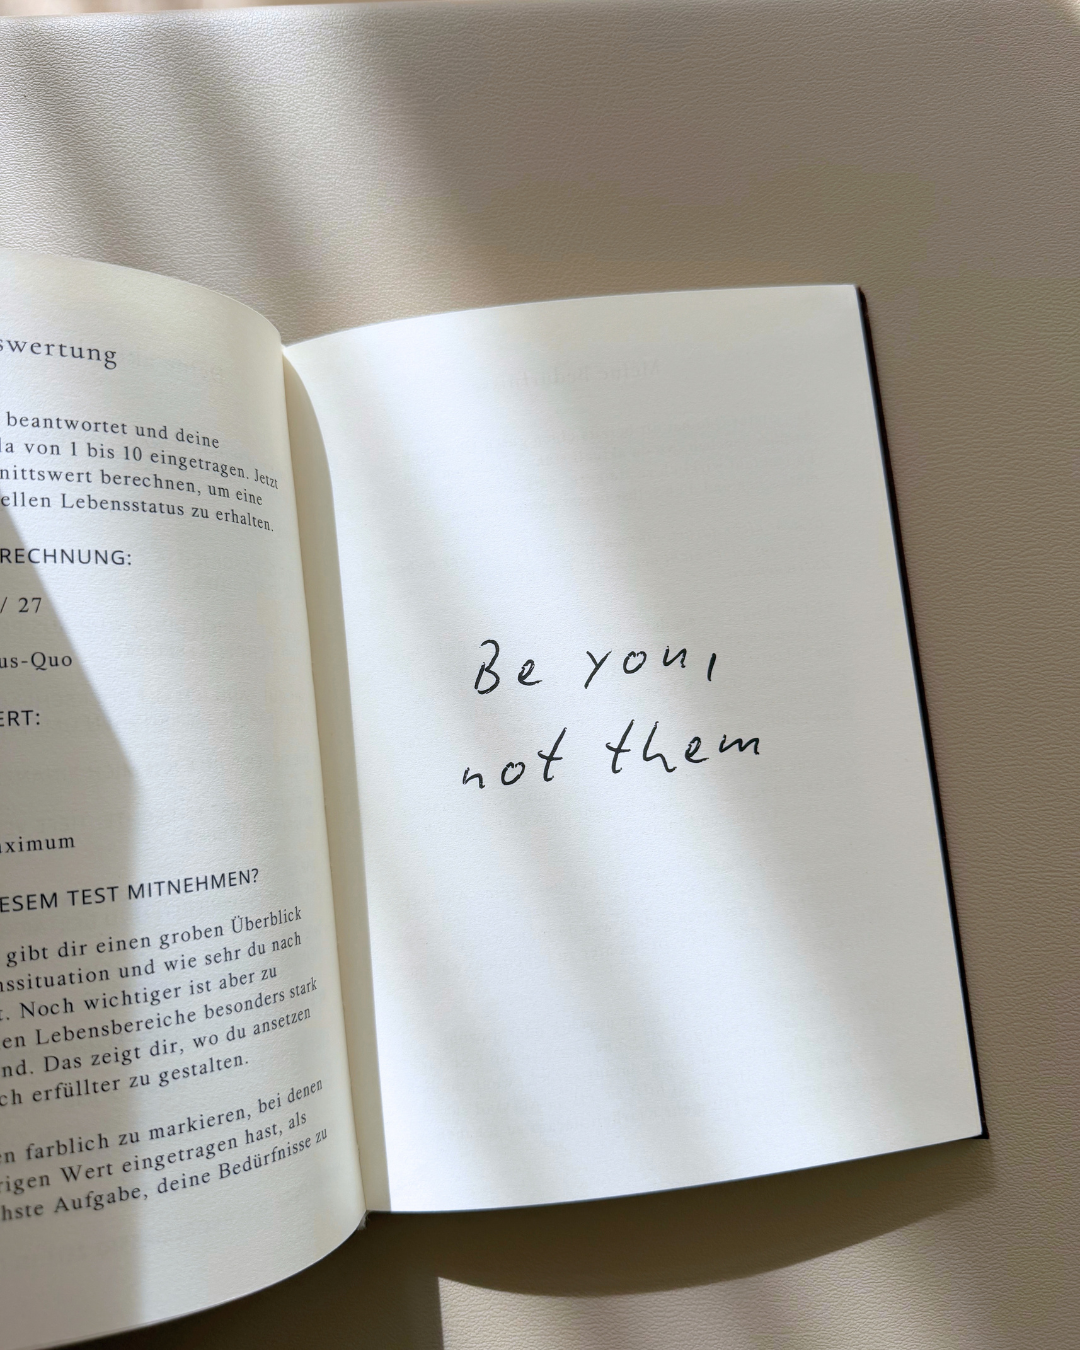 swertung
beantwortet und deine
la von 1 bis 10 eingetragen. Jetzt
nittswert berechnen, um eine
ellen Lebensstatus zu erhalten.
RECHNUNG:
/ 27
us-Quo
ERT:
ximum
ESEM TEST MITNEHMEN?
gibt dir einen groben Überblick
nssituation und wie sehr du nach
t. Noch wichtiger ist aber zu
en Lebensbereiche besonders stark
nd. Das zeigt dir, wo du ansetzen
ch erfüllter zu gestalten.
en farblich zu markieren, bei denen
rigen Wert eingetragen hast, als
hste Aufgabe, deine Bedürfnisse zu
Be you,
not them